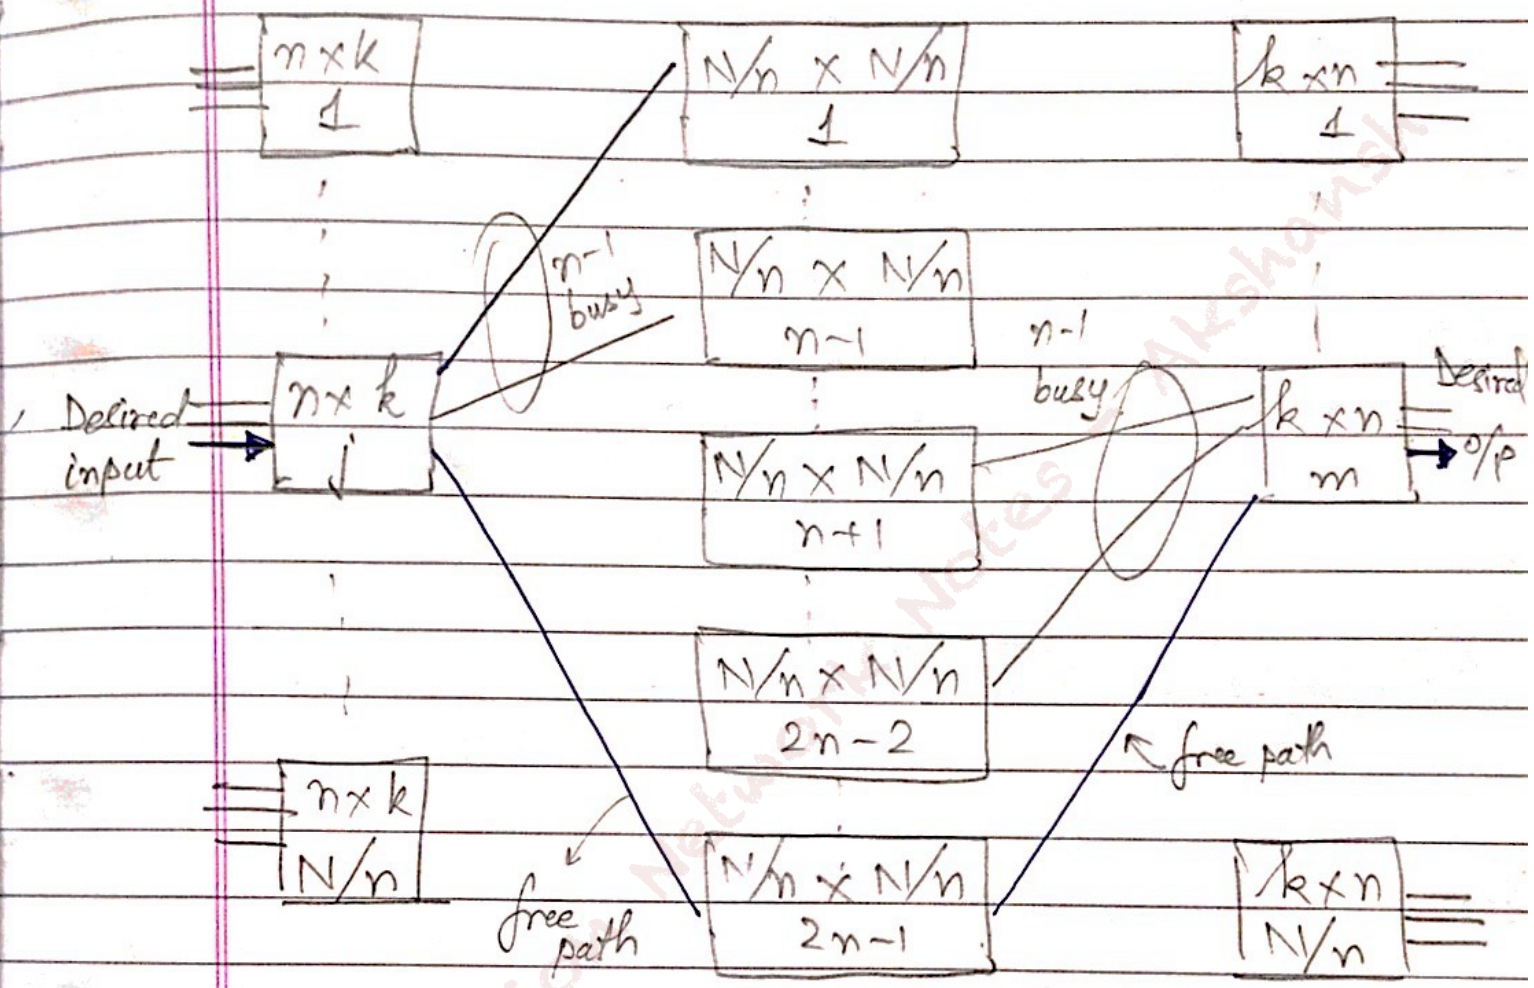 n×k
1
N/n × N/n
1
k×n
1
n-1
busy
N/n × N/n
n-1
n-1
busy
Desired
input
n×k
j
N/n × N/n
n+1
k×n
m
Desired
o/p
N/n × N/n
2n-2
free path
n×k
N/n
free
path
N/n × N/n
2n-1
k×n
N/n
Network Notes Akshansh